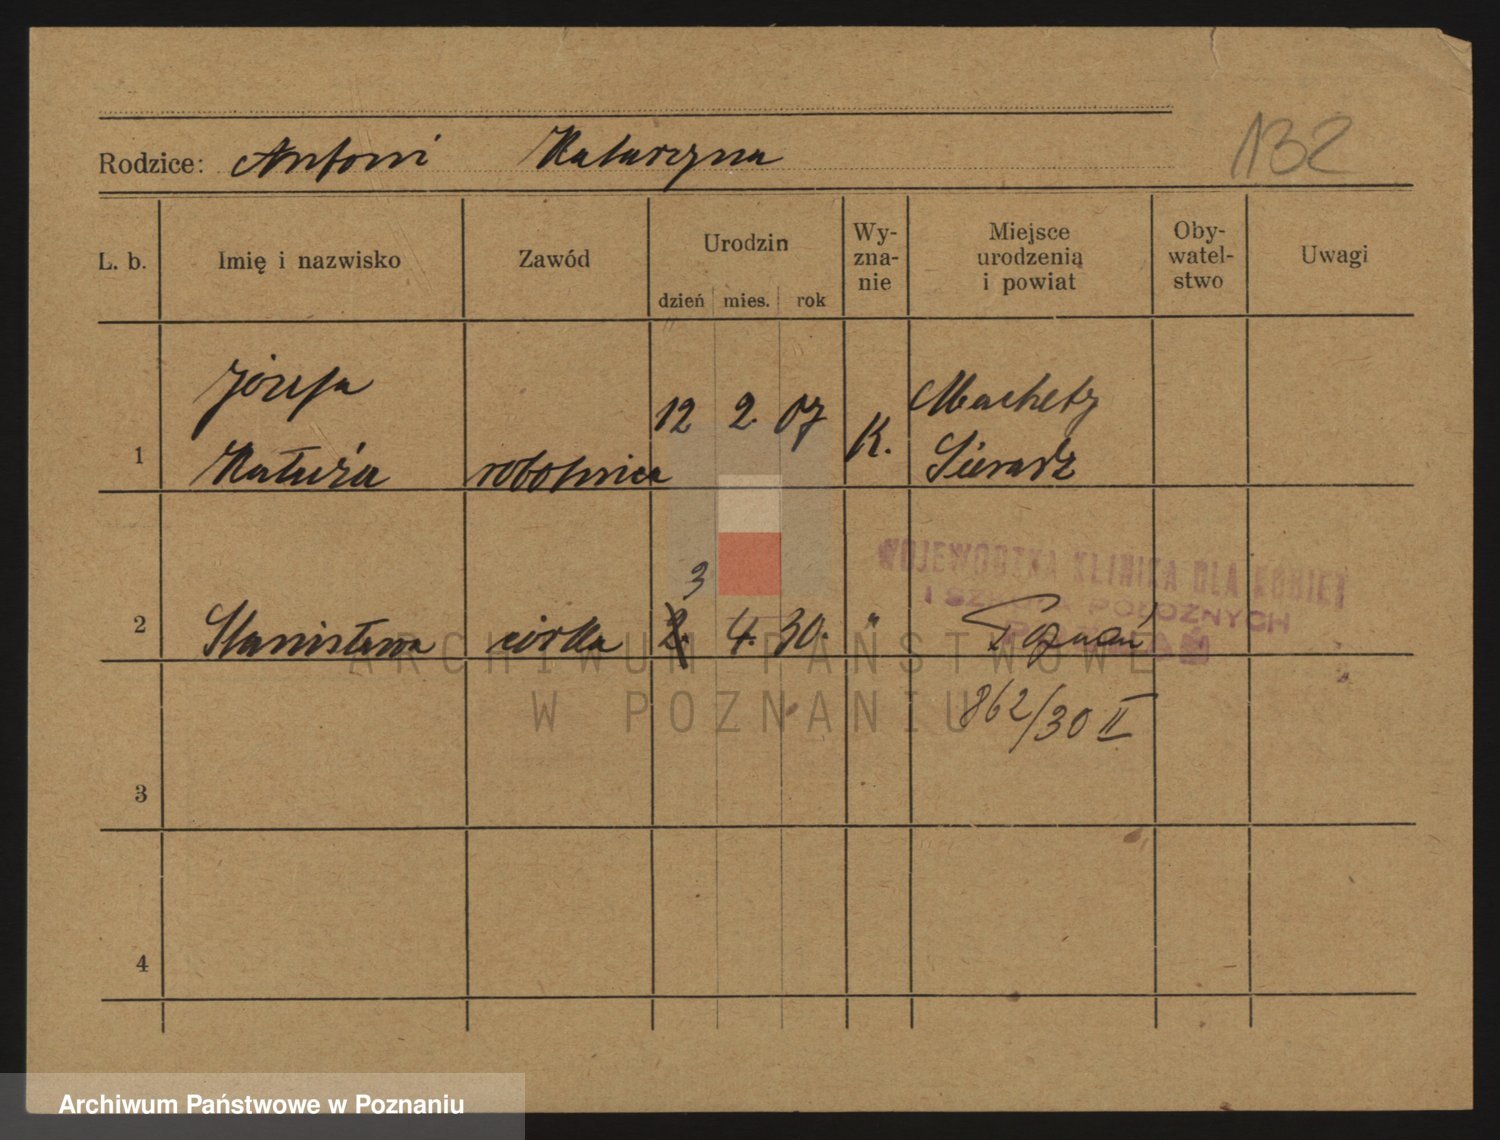 132
Rodzice: Antoni Katarzyna
L. b. Imię i nazwisko Zawód Urodzin Wy-zna-nie Miejsce urodzenia i powiat Oby-watel-stwo Uwagi
dzień mies. rok
Józefa
12 2. 07 Machety
1 Kałuża robotnica K. Sieradz
WOJEWÓDZKA KLINIKA DLA KOBIET
I SZKOŁA POŁOŻNYCH
3
2 Stanisława córka 2. 4. 30. " Poznań
862/30 II
3
4
ARCHIWUM PAŃSTWOWE
W POZNANIU
Archiwum Państwowe w Poznaniu